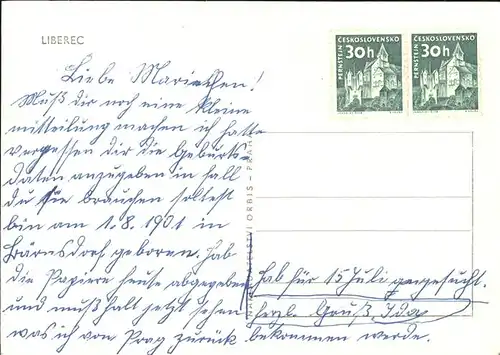 LIBEREC
ČESKOSLOVENSKO
30h
PERNŠTEJN
ČESKOSLOVENSKO
30h
PERNŠTEJN
Liebe Mariechen!
Muß dir noch eine kleine
mitteilung machen ich hatte
vergessen dir die Geburts-
daten anzugeben in fall
du sie brauchen solltest
bin am 1.8.1901 in
Bärnsdorf geboren. Hab
die Papiere heute abgegeben
und muß halt jetzt sehen
was ich von Prag zurück bekommen werde.
Hab für 15 Juli angesucht.
herzl. Gruß, Ida
ORBIS - PRAHA